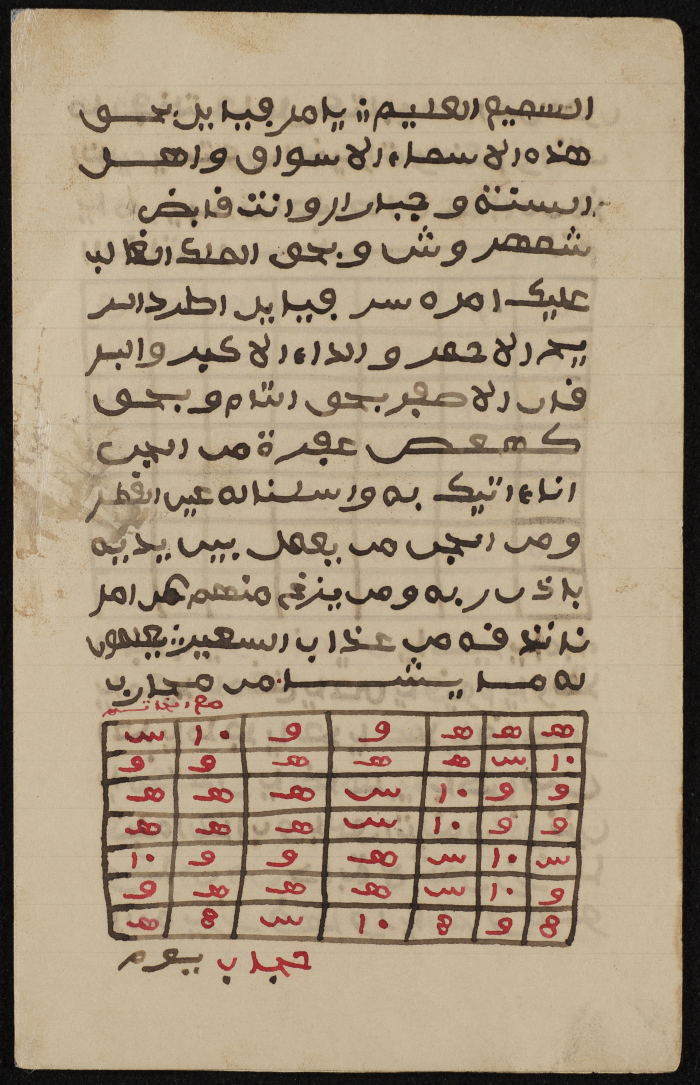 السميع العليم :: يا مر فيبا يل بحق
هذه الاسماء الاسواق واهل
السنة و جبارا روانت قابض
شمهر وش وبحق الملك الغالب
عليك امره سر فيبا يل اطرد الر
يح الاحمر والداء الاكبر والبر
قان الاصفر بحق التام وبحق
كهعص من الجن
اناءاتيك به واسلناله عين القطر
ومن الجن من يعمل بين يديه
باذن ربه ومن يزغ منهم عن امر
نا نذقه من عذاب السعير :: يعلمون
له ما يشا من محارب
مع الخاتم
ه ه ه و و ١٠ س
١٠ س ه ه ه و و
و و ١٠ س ه ه ه
و و ١٠ س ه ه ه
س ١٠ س ه و و ١٠
و ١٠ س ه ه ه و
ه و ه ١٠ س ه ه
حجاب يوم